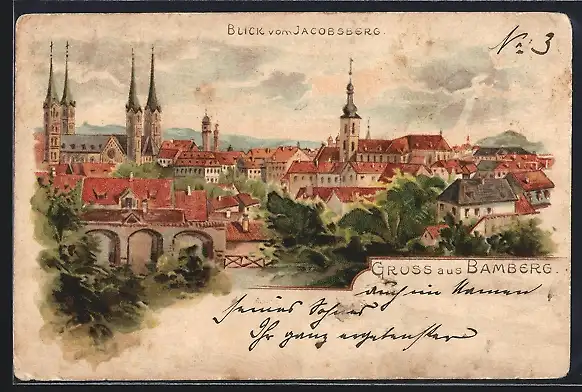 BLICK VOM JACOBSBERG.
No 3
GRUSS AUS BAMBERG.
auch im Namen
seines Sohnes
Ihr ganz ergebenster